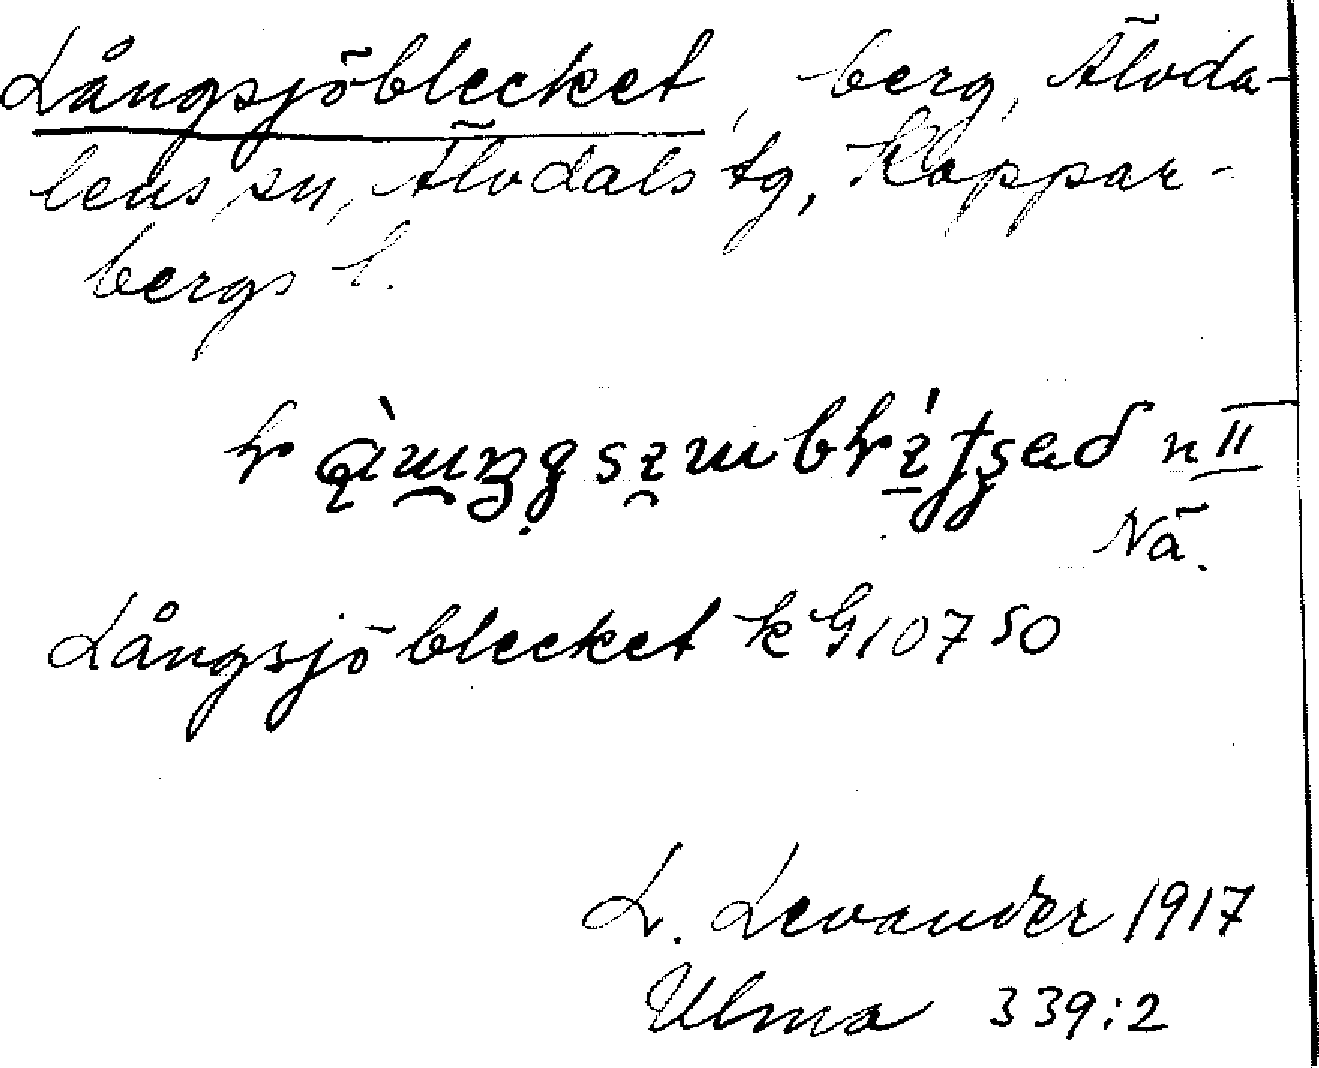 Långsjöblecket, berg, Älvda-
lens sn, Älvdals tg, Koppar-
bergs l.
n II
Nä.
Långsjöblecket k G10750
L. Levander 1917
Ulma 339:2